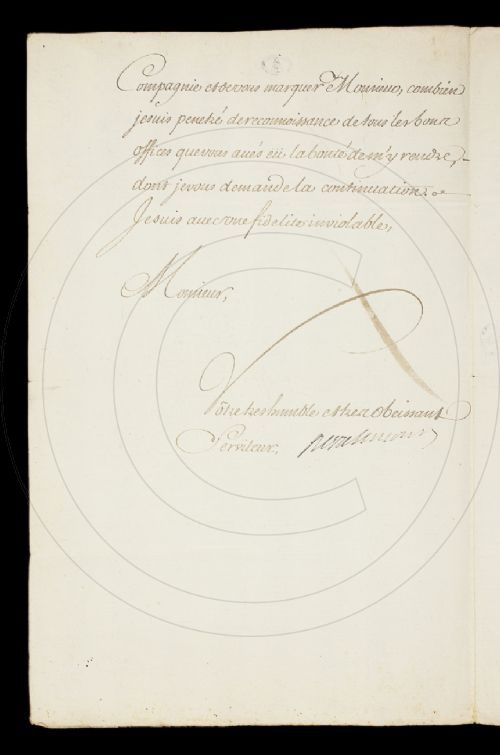 Compagnie et de vous marquer Monsieur, combien
je suis penetré de reconnoissance de tous les bons
offices que vous avés eû la bonté de m'y rendre,
dont je vous demande la continuation.
Je suis avec une fidelité inviolable,
Monsieur,
Vôtre tres humble et tres obeissant
Serviteur,